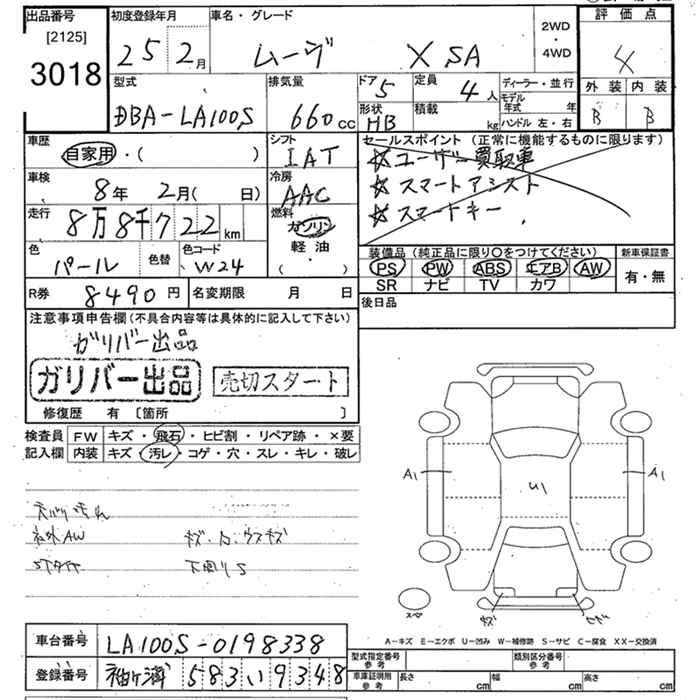 出品番号 初度登録年月 車名・グレード 評価点
[2125] 2WD
3018 25 2月 ムーヴ X SA ・ 4WD 4
型式 排気量 ドア 5 定員 4人 ディーラー・並行 外装 内装
DBA-LA100S 660cc 形状 HB 積載 kg モデル年式 年 B B
ハンドル 左・右
車歴 シフト セールスポイント (正常に機能するものに限ります)
自家用・( ) IAT ☆ユーザー買取車
車検 8年 2月( 日) 冷房 AAC ☆スマートアシスト
走行 8万8千722km 燃料 ガソリン ☆スマートキー
色 パール 色替 色コード W24 軽油 ・( )
装備品 (純正品に限り○をつけてください) 新車保証書
PS PW ABS エアB AW 有・無
SR ナビ TV カワ
R券 8490円 名変期限 月 日 後日品
注意事項申告欄(不具合内容等は具体的に記入して下さい)
ガリバー出品
ガリバー出品 売切スタート
修復歴 有 〔箇所 〕
検査員 FW キズ・飛石・ヒビ割・リペア跡・×要
記入欄 内装 キズ・汚レ・コゲ・穴・スレ・キレ・破レ
A1 U1 A1
社外AW キズ・凹・ウスキズ
下回りS
スペア キズ
A-キズ E-エクボ U-凹み W-補修跡 S-サビ C-腐食 XX-交換済
車台番号 LA100S-0198338
型式指定番号 参考 類別区分番号 参考
登録番号 袖ヶ浦 583 い 9348
車庫証明用 参考 長さ cm 幅 cm 高さ cm